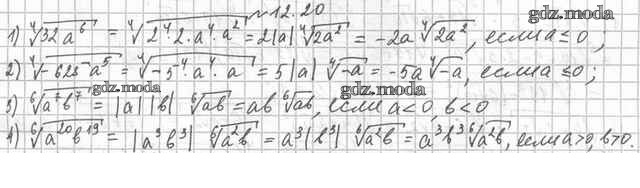 №12.20
gdz.moda
1) ⁴√32a⁶ = ⁴√2⁴·2·a⁴·a² = 2|a| ⁴√2a² = -2a ⁴√2a², если a ≤ 0;
gdz.moda
2) ⁴√-625a⁵ = ⁴√-5⁴·a⁴·a = 5|a| ⁴√-a = -5a ⁴√-a, если a ≤ 0;
gdz.moda
3) ⁶√a⁷b⁷ = |a||b| ⁶√ab = ab ⁶√ab, если a < 0, b < 0
gdz.moda
4) ⁶√a²⁰b¹⁹ = |a³b³| ⁶√a²b = a³|b³| ⁶√a²b = a³b³ ⁶√a²b, если a > 0, b > 0.
gdz.moda